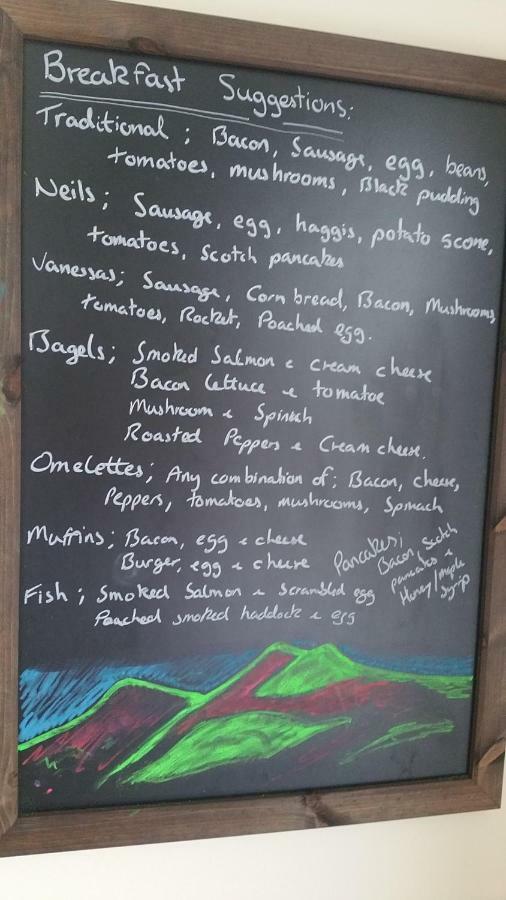 Breakfast Suggestions:
Traditional ; Bacon, Sausage, egg, beans,
tomatoes, mushrooms, Black pudding
Neils ; Sausage, egg, haggis, potato scone,
tomatoes, Scotch pancakes
Vanessas ; Sausage, Corn bread, Bacon, Mushrooms,
tomatoes, Rocket, Poached egg.
Bagels ; Smoked Salmon & cream cheese
Bacon lettuce & tomatoe
Mushroom & Spinach
Roasted Peppers & Cream cheese.
Omelettes ; Any combination of ; Bacon, cheese,
Peppers, tomatoes, mushrooms, Spinach
Muffins ; Bacon, egg & cheese
Burger, egg & cheese
Pancakes ;
Bacon, Scotch
pancakes &
Honey/maple
Syrip
Fish ; Smoked Salmon & Scrambled egg
Poached smoked haddock & egg